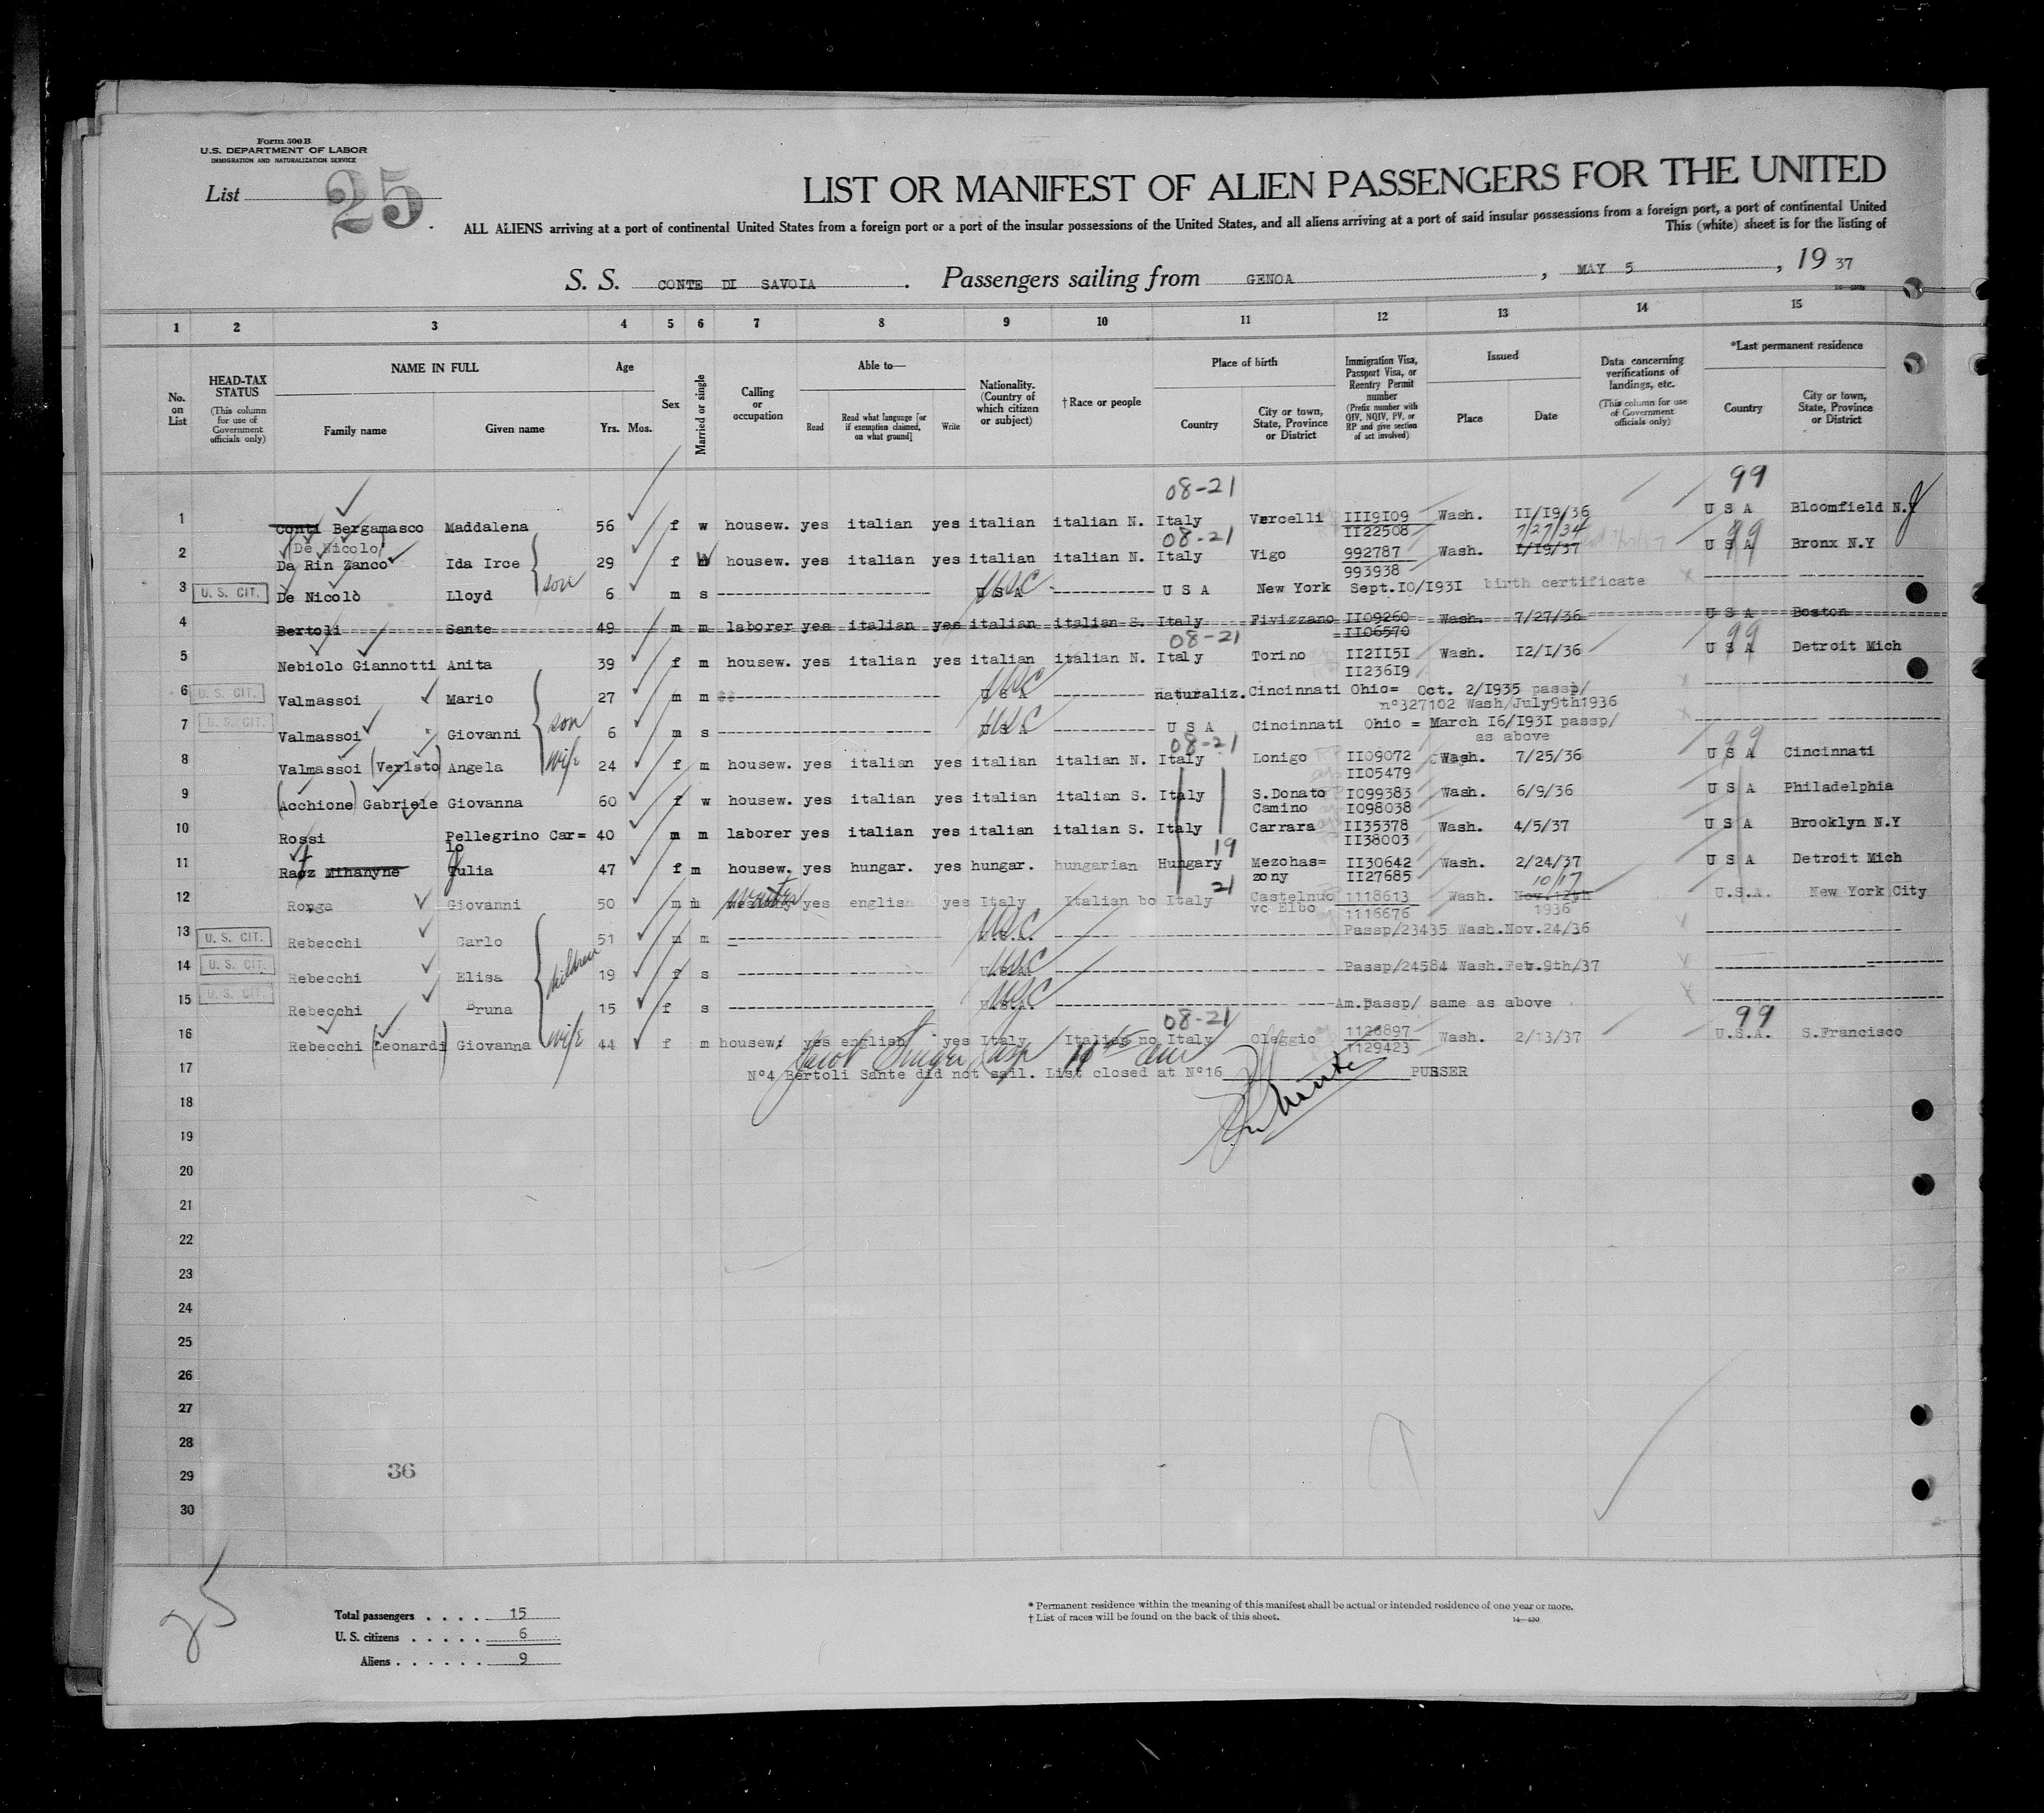 Form 500 B
U.S. DEPARTMENT OF LABOR
IMMIGRATION AND NATURALIZATION SERVICE
List 25
LIST OR MANIFEST OF ALIEN PASSENGERS FOR THE UNITED
ALL ALIENS arriving at a port of continental United States from a foreign port or a port of the insular possessions of the United States, and all aliens arriving at a port of said insular possessions from a foreign port, a port of continental United
This (white) sheet is for the listing of
S. S. CONTE DI SAVOIA. Passengers sailing from GENOA, MAY 5, 19 37
1 2 3 4 5 6 7 8 9 10 11 12 13 14 15
No. on List
HEAD-TAX STATUS (This column for use of Government officials only)
NAME IN FULL
Family name Given name
Age
Yrs. Mos.
Sex
Married or single
Calling or occupation
Able to—
Read Read what language [or if exemption claimed, on what ground] Write
Nationality. (Country of which citizen or subject)
† Race or people
Place of birth
Country City or town, State, Province or District
Immigration Visa, Passport Visa, or Reentry Permit number (Prefix number with QIV, NQIV, PV, or RP and give section of act involved)
Issued
Place Date
Data concerning verifications of landings, etc. (This column for use of Government officials only)
*Last permanent residence
Country City or town, State, Province or District
08-21 99
1 Conti Bergamasco Maddalena 56 f w housew. yes italian yes italian italian N. Italy Vercelli III9I09 Wash. II/I9/36 U S A Bloomfield N.Y
II22508 7/27/34
(De Nicolo) 08-21 99
2 Da Rin Zanco Ida Irce 29 f W housew. yes italian yes italian italian N. Italy Vigo 992787 Wash. I/I9/37 U S A Bronx N.Y
993938
3 U. S. CIT. De Nicolò Lloyd son 6 m s USC U S A U S A New York Sept.I0/I93I birth certificate
4 Bertoli Sante 49 m m laborer yes italian yes italian italian S. Italy Fivizzano II09260 Wash. 7/27/36 U S A Boston
II06570
08-21 99
5 Nebiolo Giannotti Anita 39 f m housew. yes italian yes italian italian N. Italy Torino II2II5I Wash. I2/I/36 U S A Detroit Mich
II236I9
6 U. S. CIT. Valmassoi Mario 27 m m USC U S A naturaliz. Cincinnati Ohio= Oct. 2/I935 passp/
n°327102 Wash/July9th1936
7 U. S. CIT. Valmassoi Giovanni son 6 m s USC U S A U S A Cincinnati Ohio = March I6/I93I passp/
as above
08-21 99
8 Valmassoi (Verlato) Angela wife 24 f m housew. yes italian yes italian italian N. Italy Lonigo II09072 Wash. 7/25/36 U S A Cincinnati
II05479
9 (Acchione) Gabriele Giovanna 60 f w housew. yes italian yes italian italian S. Italy S.Donato I099383 Wash. 6/9/36 U S A Philadelphia
Camino I098038
10 Rossi Pellegrino Car= 40 m m laborer yes italian yes italian italian S. Italy Carrara II35378 Wash. 4/5/37 U S A Brooklyn N.Y
lo II38003
19
11 Racz Mihanyne Julia 47 f m housew. yes hungar. yes hungar. hungarian Hungary Mezohas= II30642 Wash. 2/24/37 U S A Detroit Mich
zony II27685
21 10/17
12 Ronga Giovanni 50 m m waiter yes english yes Italy Italian bo Italy Castelnuo 1118613 Wash. Nov.12th U.S.A. New York City
vc Elbo 1116676 1936
13 U. S. CIT. Rebecchi Carlo 51 m m USC U.S.A. Passp/23435 Wash.Nov.24/36
14 U. S. CIT. Rebecchi Elisa children 19 f s USC U.S.A. Passp/24584 Wash.Feb.9th/37
15 U. S. CIT. Rebecchi Bruna 15 f s USC U.S.A. Am.passp/ same as above
08-21 99
16 Rebecchi (Leonardi) Giovanna wife 44 f m housew. yes english yes Italy Italian no Italy Oleggio 1126897 Wash. 2/13/37 U.S.A. S.Francisco
1129423
Jacob Singer Insp
17 N°4 Bertoli Sante did not sail. List closed at N°16 PURSER
18
19
20
21
22
23
24
25
26
27
28
29
30
36
25
Total passengers . . . . 15
U. S. citizens . . . . . 6
Aliens . . . . . . 9
* Permanent residence within the meaning of this manifest shall be actual or intended residence of one year or more.
† List of races will be found on the back of this sheet.
14—430